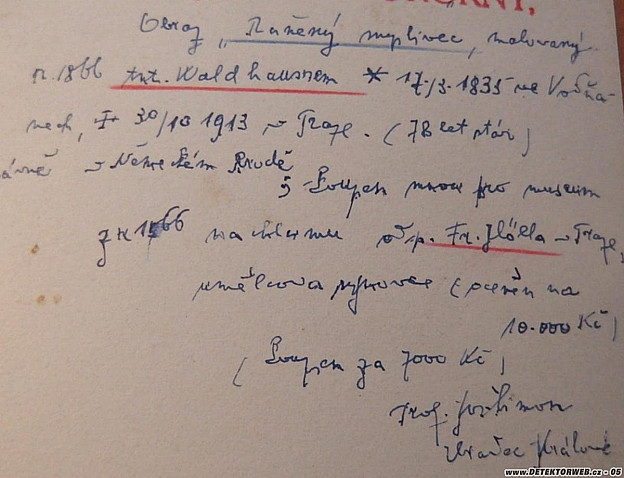 Obraz „Raněný myslivec, malovaný
r. 1866 Ant. Waldhauserem * 17/3. 1835 ve Vodňa-
nech, + 30/10 1913 v Praze. (78 let stár)
v Německém Brodě
Koupen mnou pro museum
1866 na od p. Fr. v Praze,
umělcova synovce (oceněn na
10.000 Kč)
(Koupen za 7000 Kč)
Prof.
Hradec Králové
www.DETEKTORWEB.cz - 05